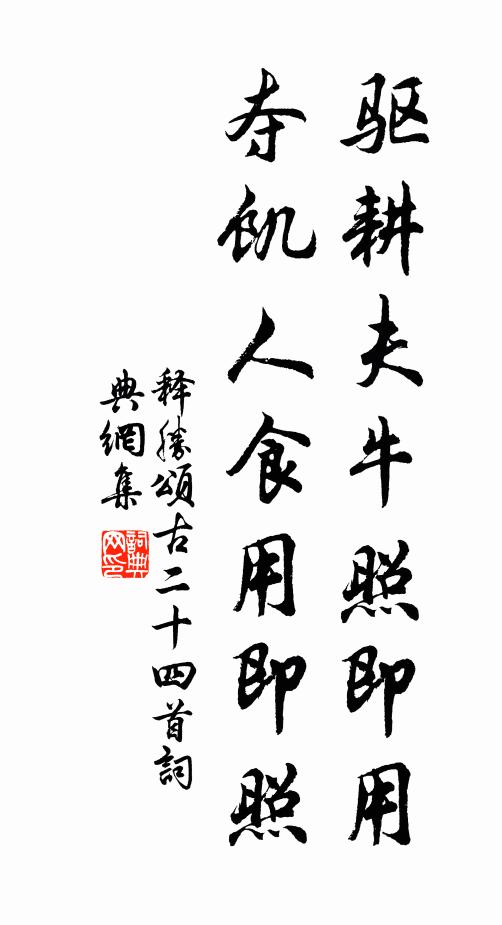 驱耕夫牛照即用
夺飢人食用即照
释勝頌古二十四首詞
典網集
詞典
网印